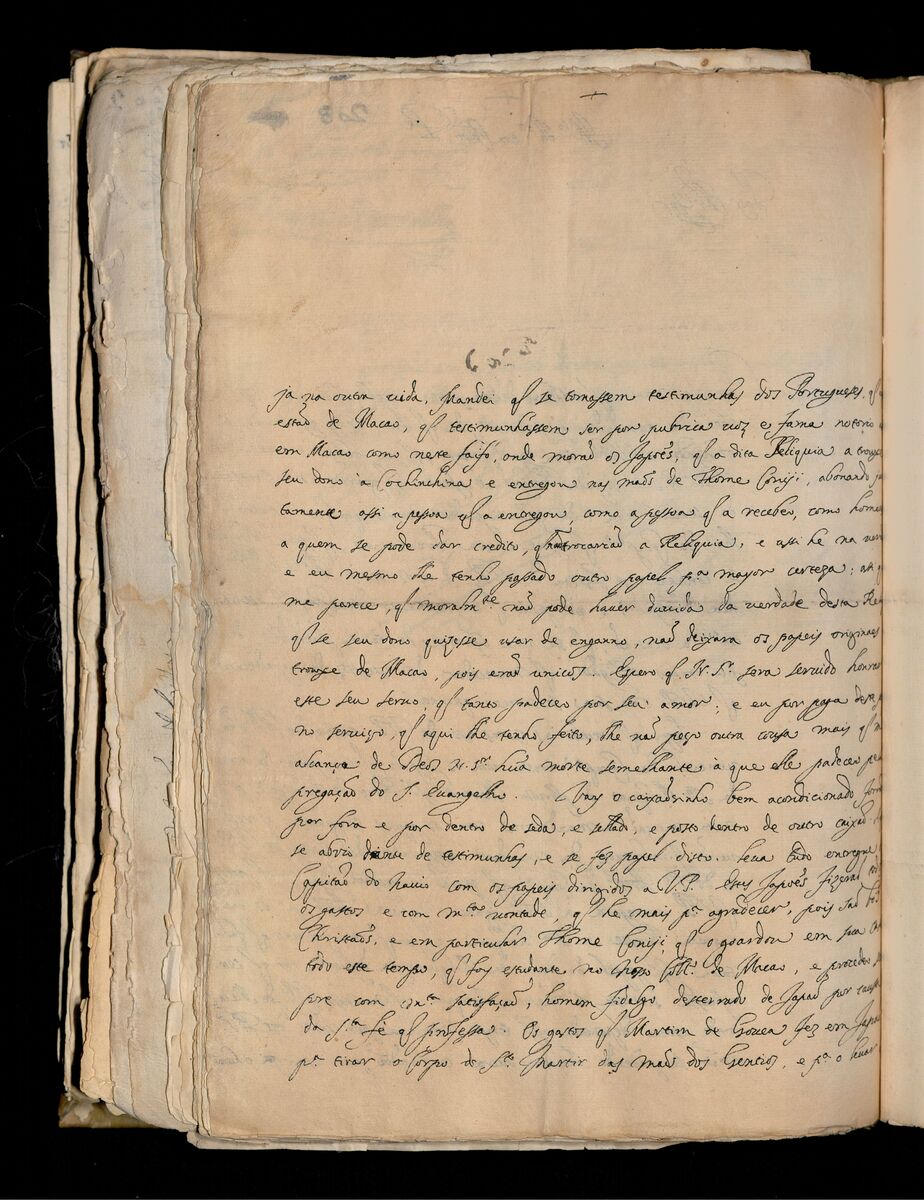 ja na outra vida, Mandei q̃ se tomassem testimunhas dos Portugueses, q̃
estaõ de Macao, q̃ testimunhassem ser por publica uoz e fama notorio
em Macao como neste faifó, onde moraõ os Japoẽs, q̃ a dita Reliquia a trouxe
seu dono à Cochinchina e entregou nas maõs de Thome Conisi, abonando
tamente assi a pessoa q̃ a entregou, como a pessoa q̃ a recebeo, como
a quem se pode dar credito, q̃ naõ trocariaõ a Reliquia, e assi he na
e eu mesmo lhe tenho passado outro papel pª mayor certeza; assi
me parece, q̃ moralmte naõ pode hauer duuida da uerdade desta
q̃ se seu dono quisesse usar de enganno, naõ deixara os papeis originaes
trouxe de Macao, pois eraõ unicos. Espero q̃ N. Sr. sera seruido
este seu seruo, q̃ tanto padeceo por seu amor; e eu por paga deste
no seruiço, q̃ aqui lhe tenho feito, lhe naõ peço outra cousa mais q̃
alcançe de Deos N. Sr. huã morte semelhante à que elle padeceo
pregação do S. Euangelho. Vay o caixaõsinho bem acondicionado
por fora e por dentro de seda, e sellado, e posto dentro de outro caixaõ
se abrio diante de testimunhas, e se fez papel disto. Leua tudo entregue
Capitaõ do Nauio com os papeis dirigidos a V.P. Estes Japoẽs fizeraõ
os gastos e com mta uontade, q̃ he mais pª agradecer, pois saõ
Christaõs, e em particular Thome Conisi, q̃ o guardou em sua
todo este tempo, q̃ foy estudante no Collº. de Macao, e procedeo
pre com mta satisfaçaõ, homem fidalgo desterrado de Japaõ por
da Sta fe q̃ professa. Os gastos q̃ Martim de Gouea fez em
pª tirar o Corpo do Sto Martir das maõs dos Gentios, e pª o